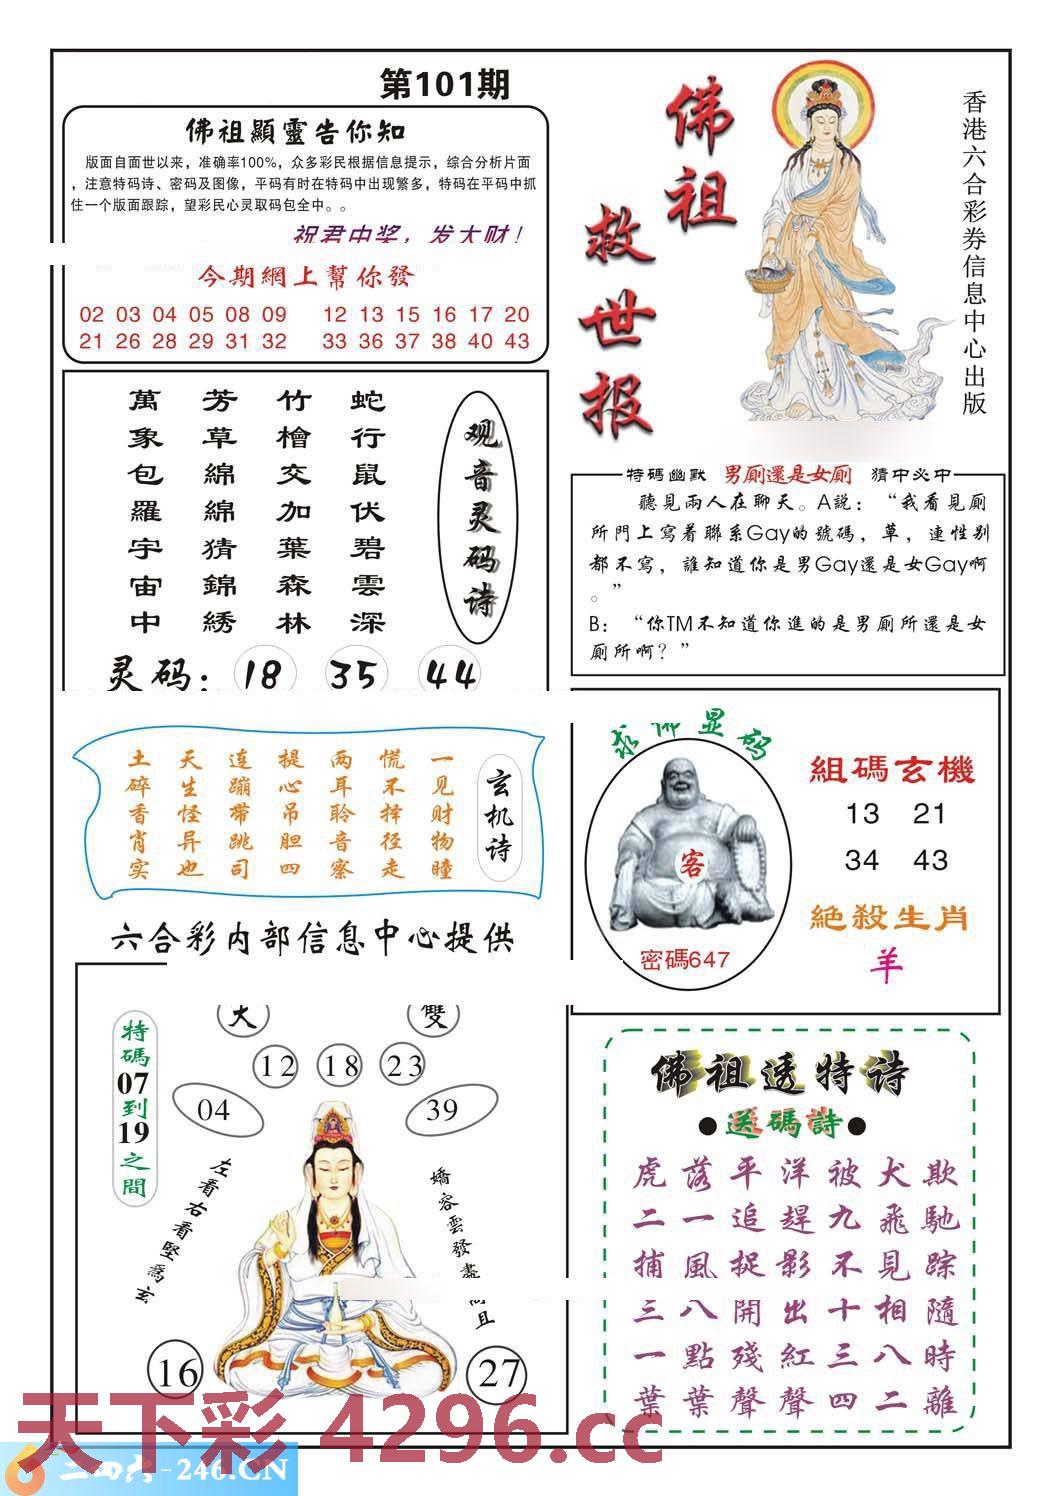 第101期
佛祖顯靈告你知
版面自面世以来，准确率100%，众多彩民根据信息提示，综合分析片面
，注意特码诗、密码及图像，平码有时在特码中出现繁多，特码在平码中抓
住一个版面跟踪，望彩民心灵取码包全中。。
祝君中奖，发大财！
今期網上幫你發
02 03 04 05 08 09 12 13 15 16 17 20
21 26 28 29 31 32 33 36 37 38 40 43
佛祖
救世报
香港六合彩券信息中心出版
观音灵码诗
蛇行鼠伏碧雲深
竹檜交加葉森林
芳草綿綿猜錦綉
萬象包羅宇宙中
灵码：18 35 44
特碼幽默 男厠還是女厠 猜中必中
聽見兩人在聊天。A説：“我看見厠
所門上寫着聯系Gay的號碼，草，連性别
都不寫，誰知道你是男Gay還是女Gay啊
。”
B：“你TM不知道你進的是男厠所還是女
厠所啊？”
玄机诗
一见财物瞳
慌不择径走
两耳聆音察
提心吊胆四
连蹦带跳司
天生怪异也
土碎香肖实
求佛显码
客
密碼647
組碼玄機
13 21
34 43
絶殺生肖
羊
六合彩内部信息中心提供
特碼07到19之間
大 雙
12 18 23
04 39
左看右看堅爲玄
嬌容雲發盡
且
16 27
佛祖透特诗
●送碼詩●
虎落平洋被犬欺
二一追趕九飛馳
捕風捉影不見踪
三八開出十相隨
一點殘紅三八時
葉葉聲聲四二離
天下彩 4296.cc
二四六-246.CN